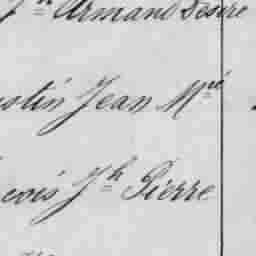 Jh Armand Désiré
ustin Jean Mie
çois Jh Pierre